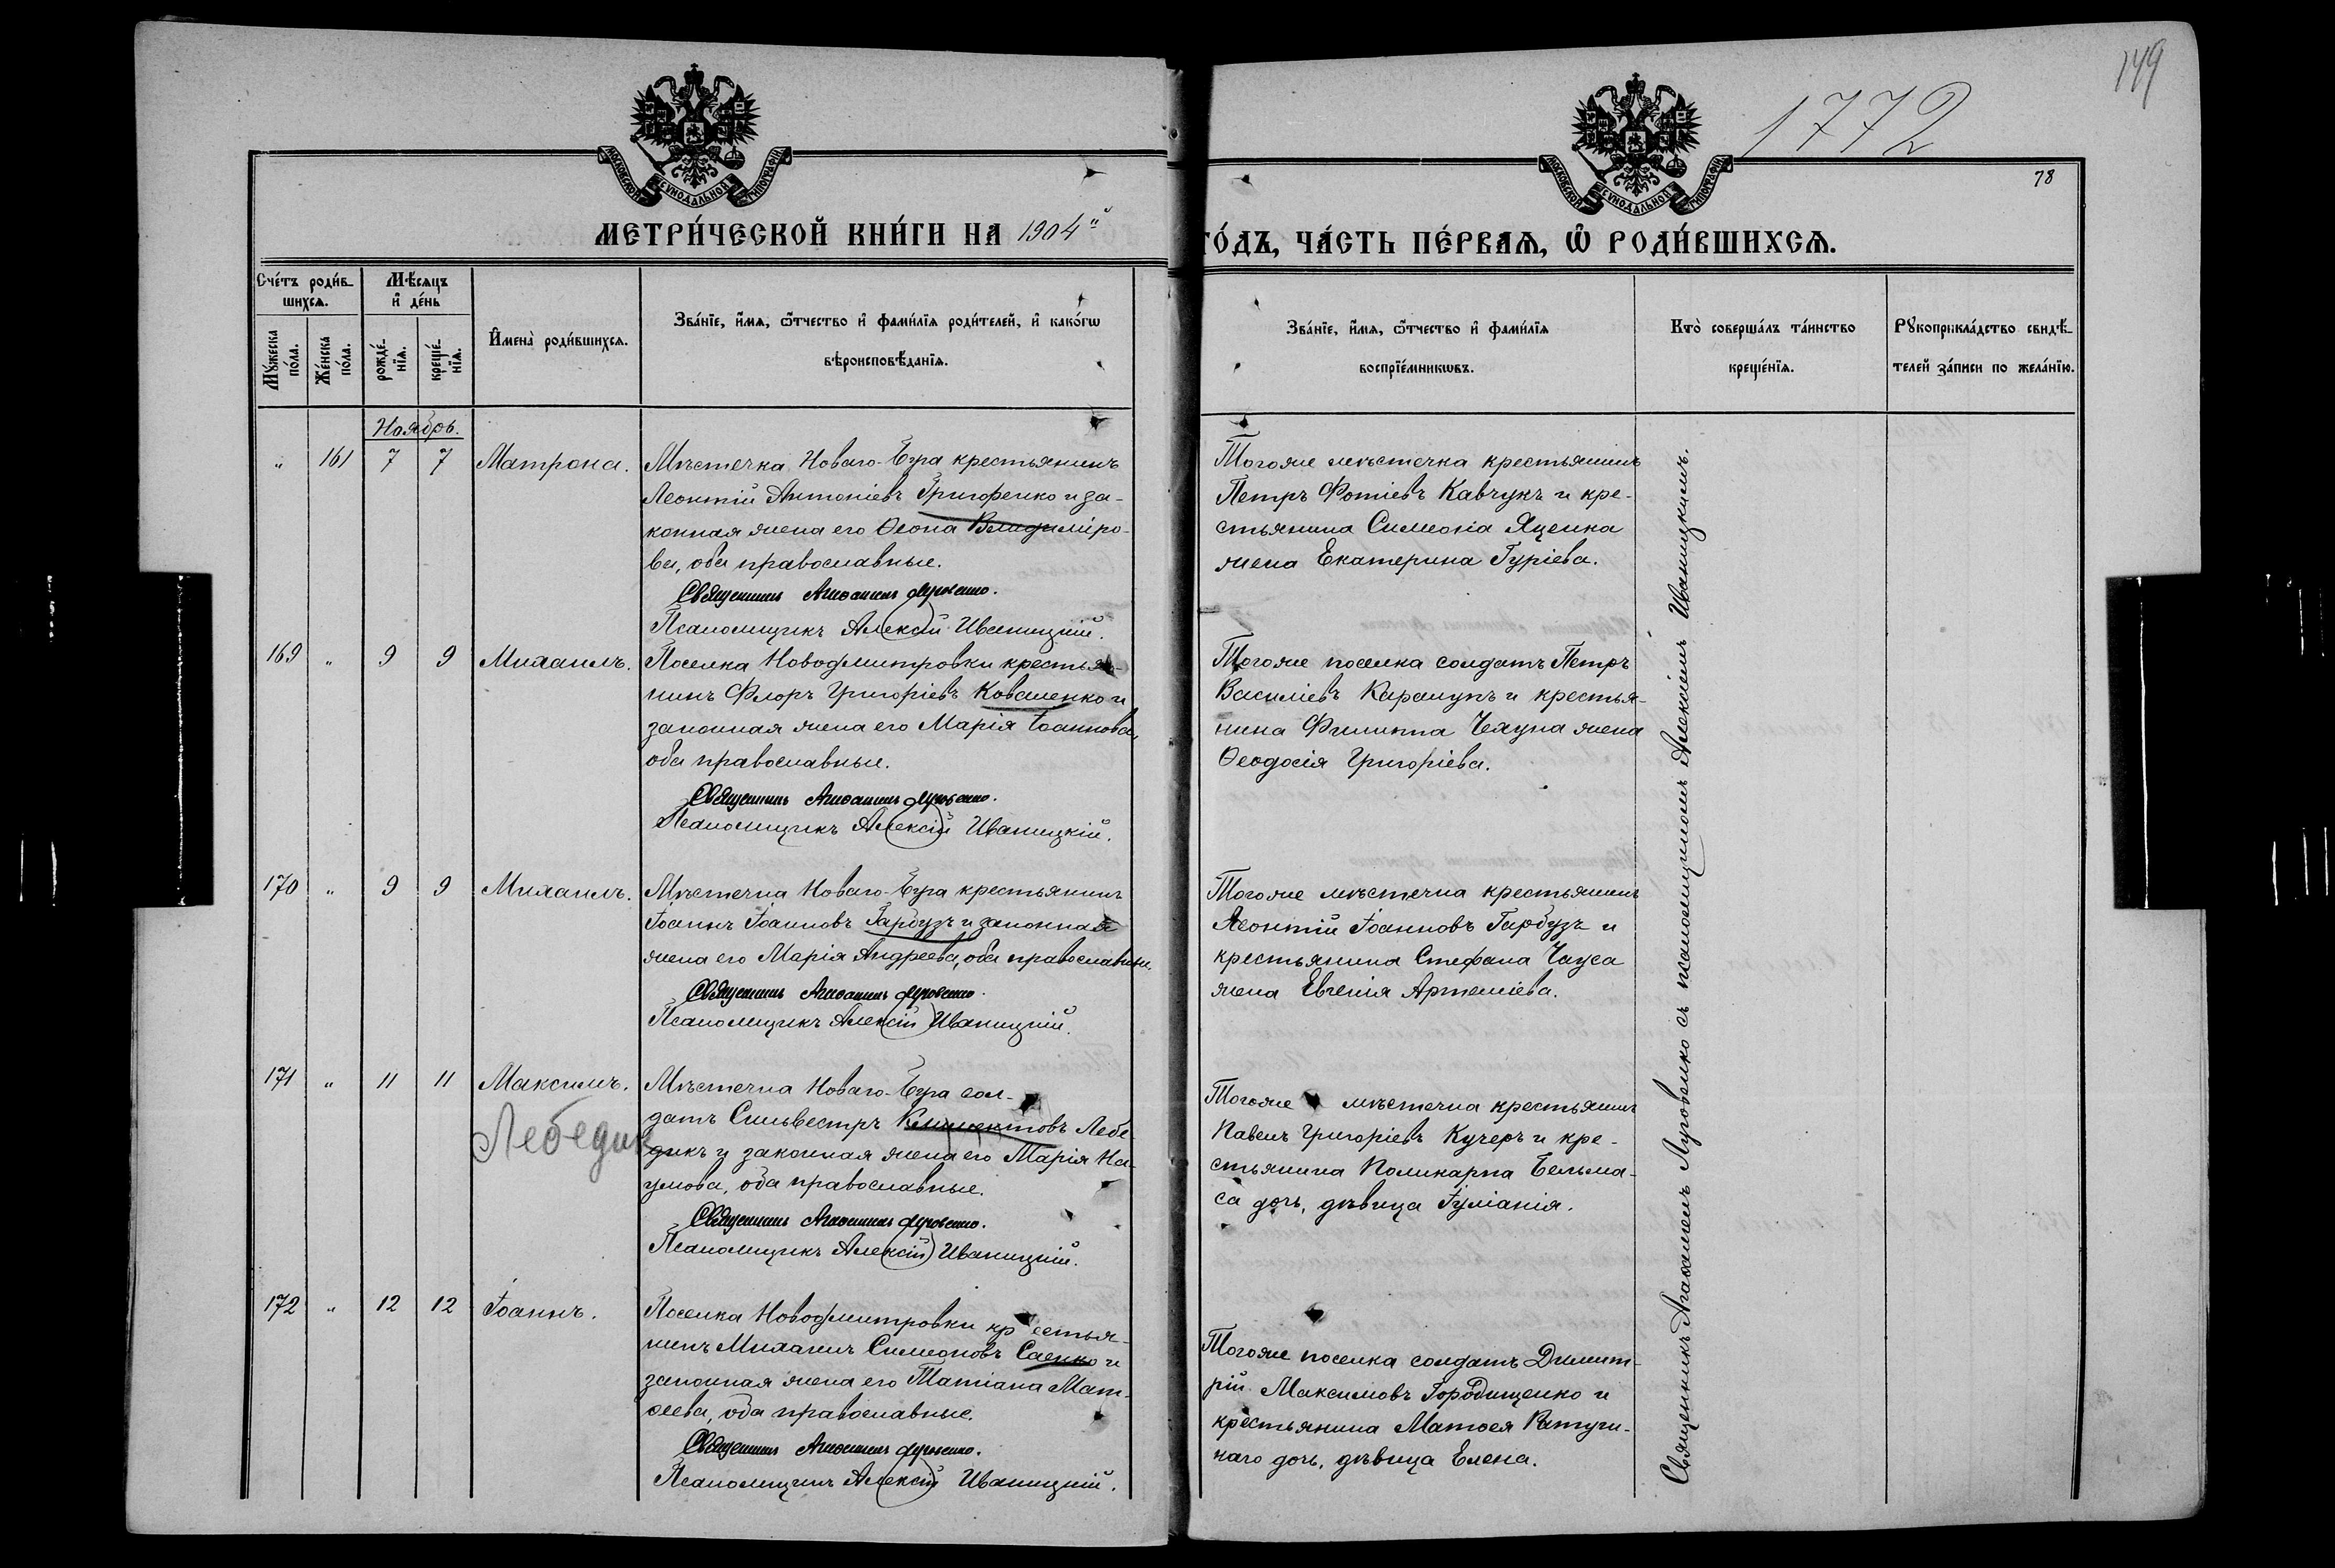 149
1772
78
МОСКОВСКОЙ СѴНОДАЛЬНОЙ ТИПОГРАФІИ
МОСКОВСКОЙ СѴНОДАЛЬНОЙ ТИПОГРАФІИ
МЕТРИ́ЧЕСКОЙ КНИ́ГИ НА 1904й
ГО́ДЪ, ЧА́СТЬ ПЕ́РВАѦ, Ѿ РОДИ́ВШИХСѦ.
Сче́тъ роди́в-
шихсѧ.
Мѣ́сѧцъ
и҆ де́нь
Мꙋ́жеска по́ла.
Же́нска по́ла.
рожде́-
нїѧ.
креще́-
нїѧ.
И҆мена̀ роди́вшихсѧ.
Зва́нїе, и҆́мѧ, ѻ҆́тчество и҆ фами́лїѧ роди́телей, и҆ како́гѡ
вѣроисповѣ́данїѧ.
Зва́нїе, и҆́мѧ, ѻ҆́тчество и҆ фами́лїѧ
воспрїе́мникѡвъ.
Кто̀ соверша́лъ та́инство
креще́нїѧ.
Рꙋкоприкла́дство свидѣ́-
телей за́писи по жела́нїю.
Ноябрь.
" 161 7 7 Матрона.
Мѣстечка Новаго-Буга крестьянинъ
Леонтій Антоніевъ Григоренко и за-
конная жена его Ѳеона Владиміро-
ва, оба православные.
Священникъ Агаѳангелъ Луговенко.
Псаломщикъ Алексій Иваницкій.
Тогоже мѣстечка крестьянинъ
Петръ Фотіевъ Кавчукъ и кре-
стьянина Симеона Яценка
жена Екатерина Гуріева.
169 " 9 9 Михаилъ.
Поселка Новодмитровки крестья-
нинъ Флоръ Григоріевъ Коваленко и
законная жена его Марія Іоаннова,
оба православные.
Священникъ Агаѳангелъ Луговенко.
Псаломщикъ Алексій Иваницкій.
Тогоже поселка солдатъ Петръ
Василіевъ Карамунъ и крестья-
нина Филиппа Чахуна жена
Ѳеодосія Григоріева.
170 " 9 9 Михаилъ.
Мѣстечка Новаго-Буга крестьянинъ
Іоаннъ Іоанновъ Гарбузъ и законная
жена его Марія Андреева, оба православные.
Священникъ Агаѳангелъ Луговенко.
Псаломщикъ Алексій Иваницкій.
Тогоже мѣстечка крестьянинъ
Леонтій Іоанновъ Гарбузъ и
крестьянина Стефана Чауса
жена Евгенія Артеміева.
171 " 11 11 Максимъ.
Лебедик
Мѣстечка Новаго-Буга сол-
датъ Сильвестръ Климентовъ Лебе-
дикъ и законная жена его Марія На-
умова, оба православные.
Священникъ Агаѳангелъ Луговенко.
Псаломщикъ Алексій Иваницкій.
Тогоже мѣстечка крестьянинъ
Павелъ Григоріевъ Кучеръ и кре-
стьянина Поликарпа Бельма-
са дочь, дѣвица Іуліанія.
172 " 12 12 Іоаннъ.
Поселка Новодмитровки крестья-
нинъ Михаилъ Симеоновъ Саенко и
законная жена его Татіана Мат-
ѳеева, оба православные.
Священникъ Агаѳангелъ Луговенко.
Псаломщикъ Алексій Иваницкій.
Тогоже поселка солдатъ Димит-
рій Максимовъ Городищенко и
крестьянина Матѳея
наго дочь, дѣвица Елена.
Священникъ Агаѳангелъ Луговенко съ псаломщикомъ Алексіемъ Иваницкимъ.